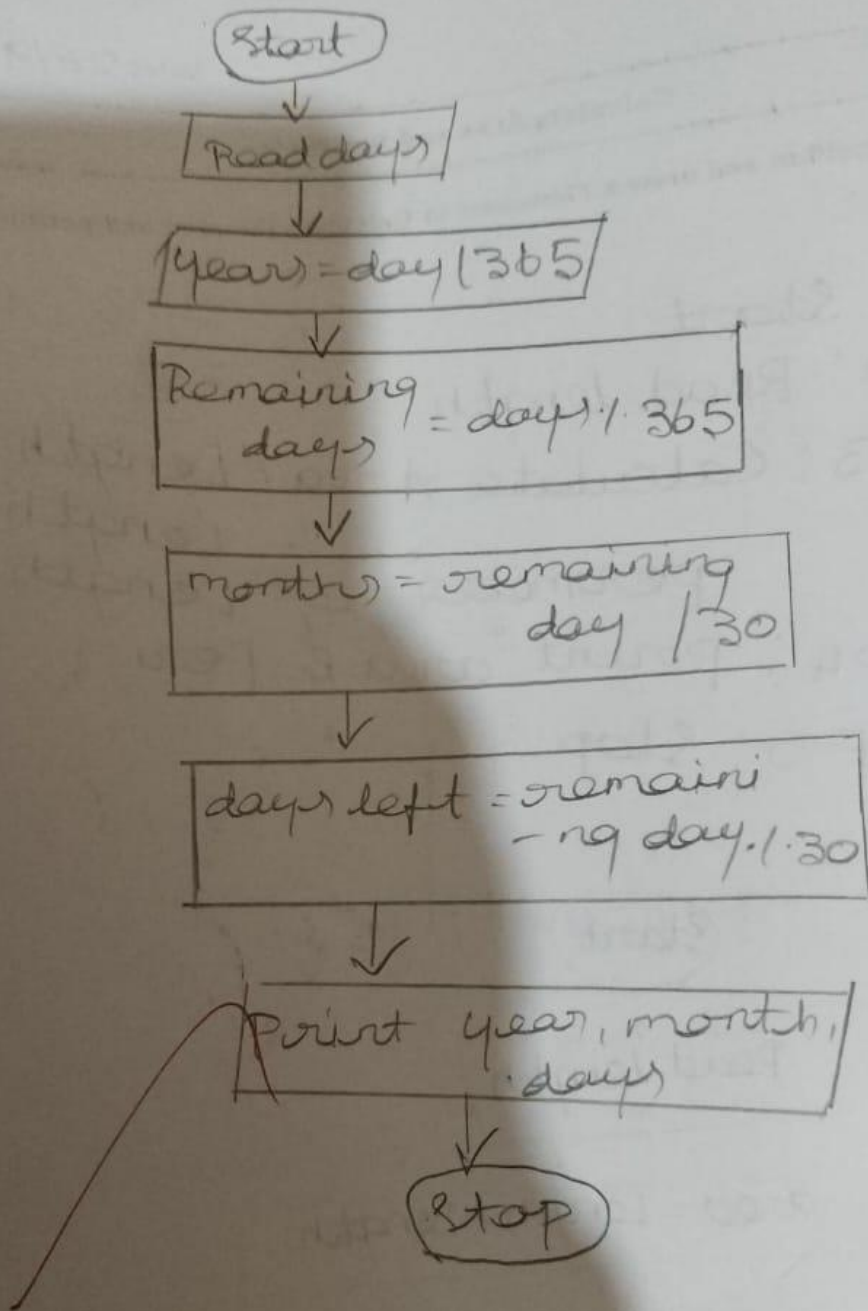 Start
Read days
years = day / 365
Remaining
days = days % 365
months = remaining
day / 30
days left = remaini
-ng day % 30
Print year, month,
days
Stop